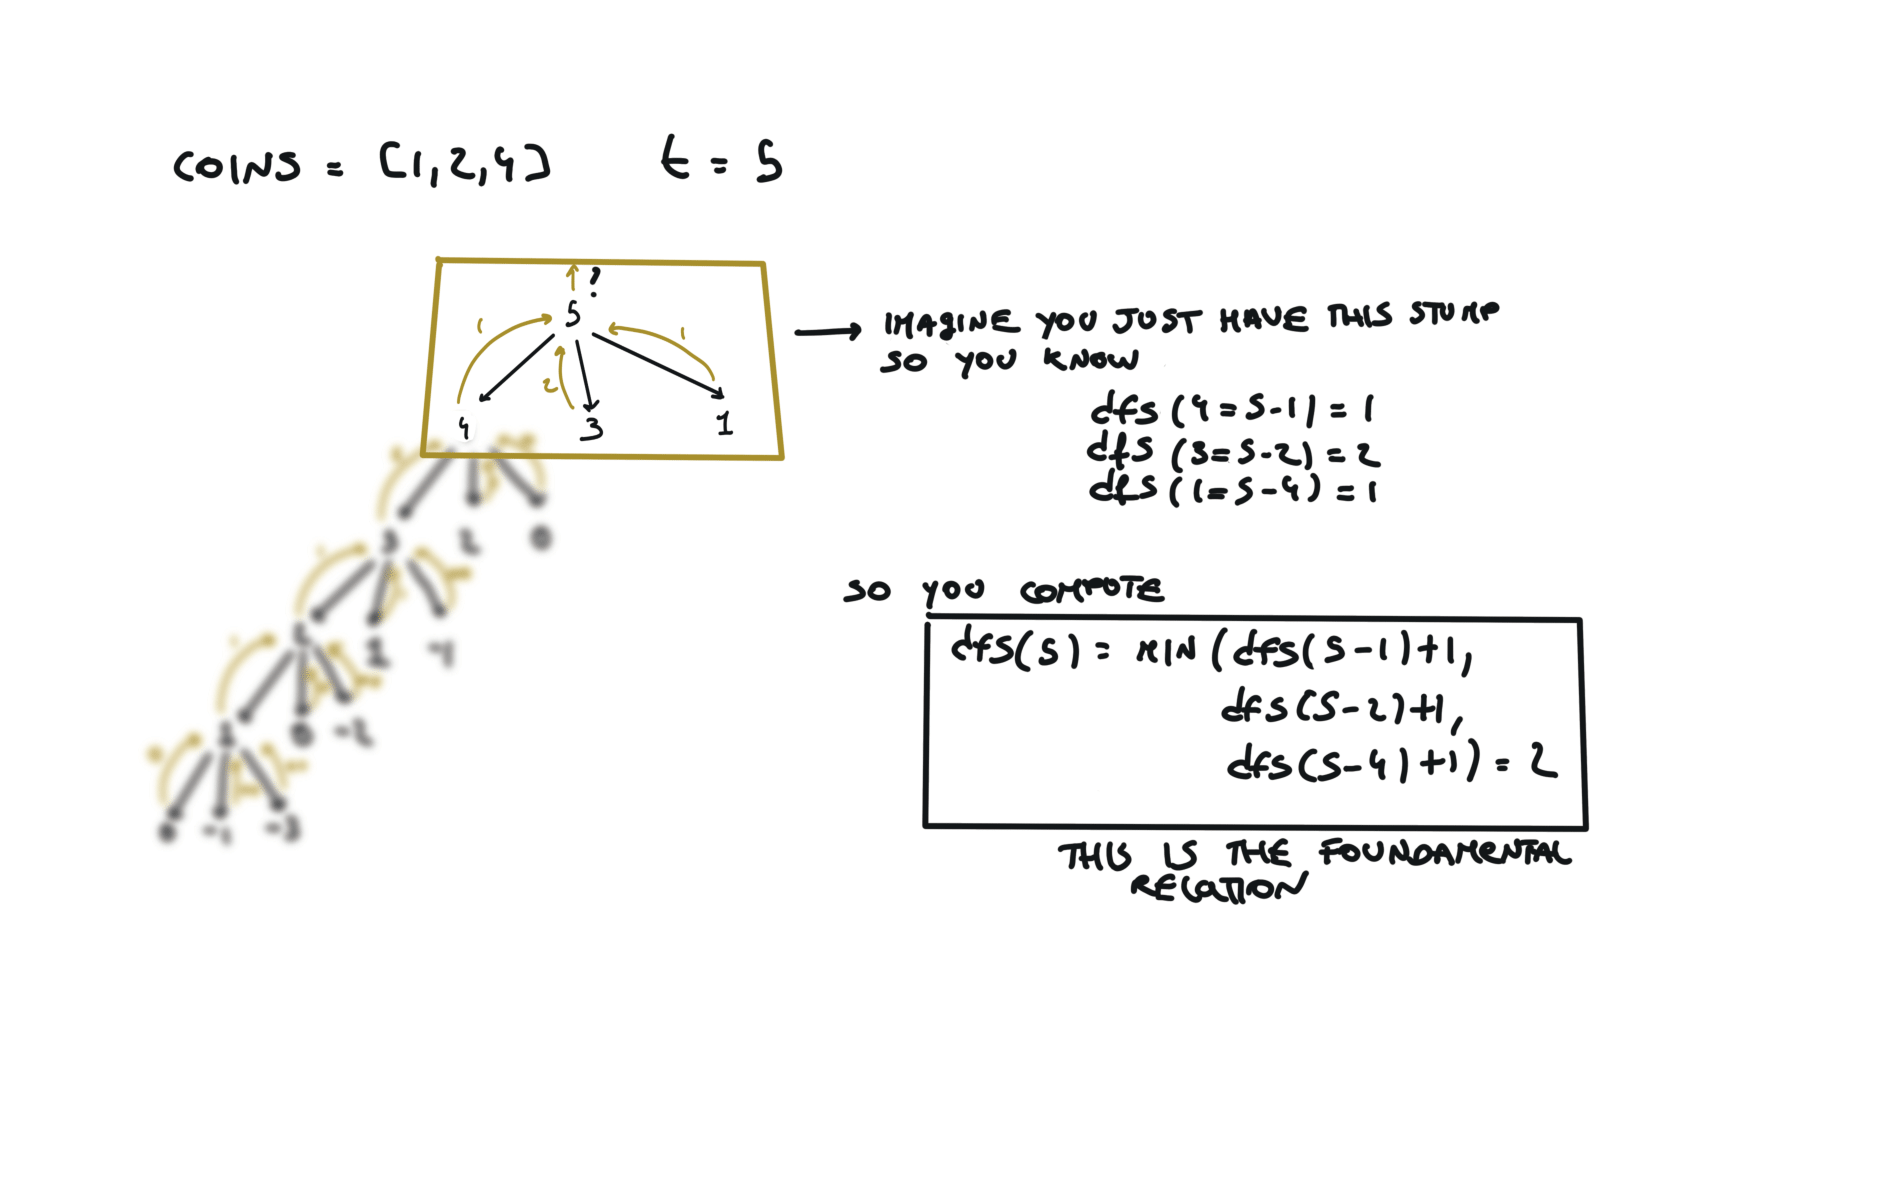 COINS = [1,2,4]   t = 5
?
5
1   1
2
4   3   1
IMAGINE YOU JUST HAVE THIS STUMP
SO YOU KNOW
dfs (4=5-1) = 1
dfs (3=5-2) = 2
dfs (1=5-4) = 1
3   2   0
1   -1
0   -2
0   -1   -3
SO YOU COMPUTE
dfs(5) = MIN (dfs(5-1)+1,
dfs(5-2)+1,
dfs(5-4)+1) = 2
THIS IS THE FOUNDAMENTAL
RELATION